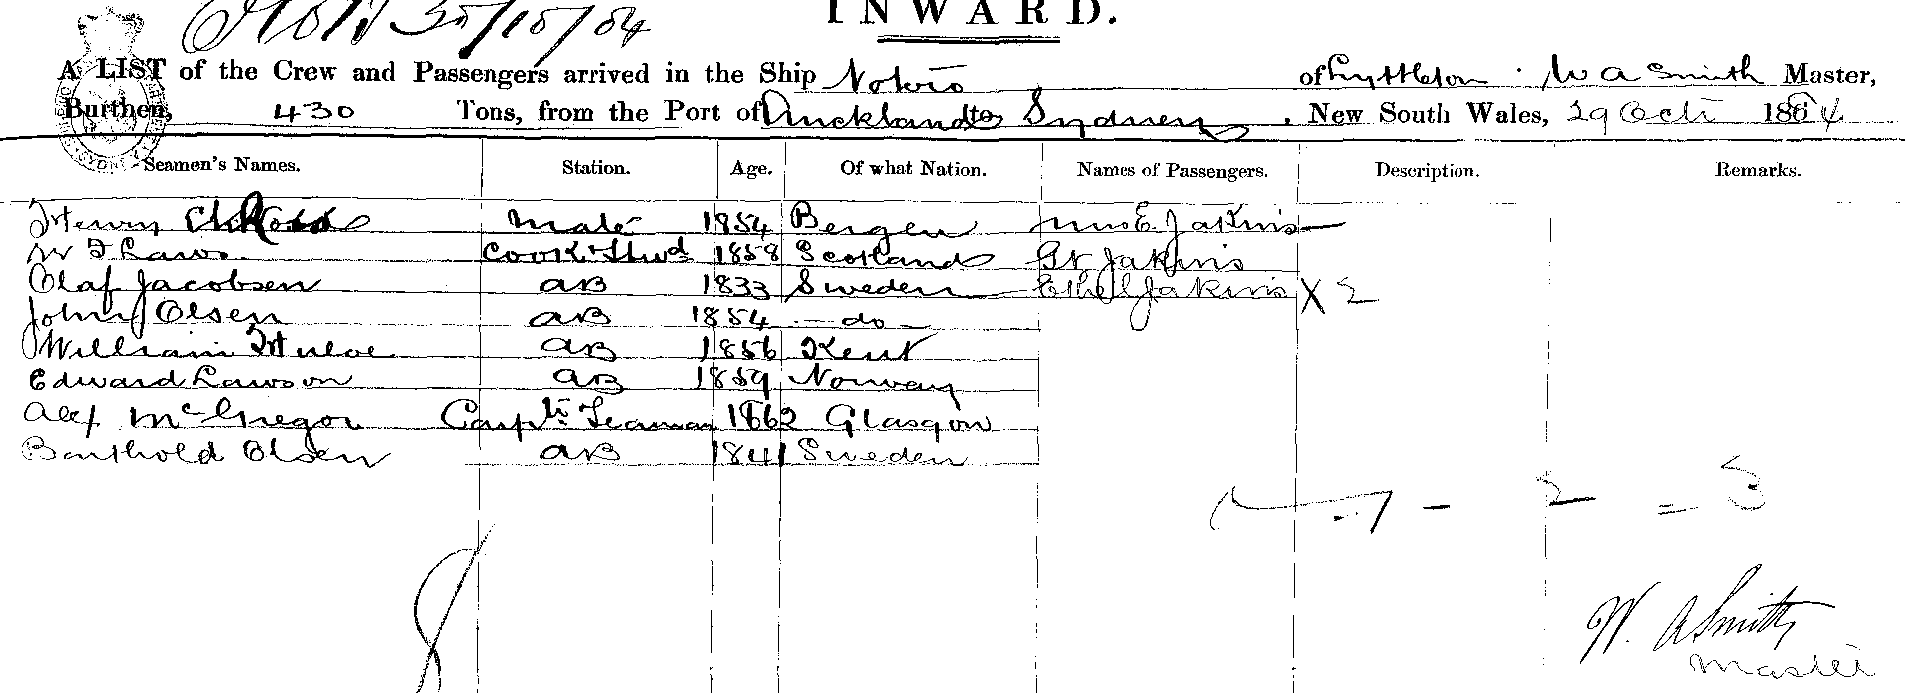 30/10/84
INWARD.
A LIST of the Crew and Passengers arrived in the Ship of Lyttleton. W A Smith Master,
Burthen, 430 Tons, from the Port of Auckland to Sydney, New South Wales, 29 Oct 1884
Seamen's Names. Station. Age. Of what Nation. Names of Passengers. Description. Remarks.
Henry Mate 1854 Bergen Mrs E Jakins
W Laws Cook & Stwd 1858 Scotland Jakins
Olaf Jacobsen AB 1833 Sweden Ethel Jakins X 2
John Olsen AB 1854 - do -
William AB 1856 Kent
Edward Lawson AB 1859 Norway
Alex McGregor Seaman 1862 Glasgow
Barthold Olsen AB 1841 Sweden
1 - 2 = 3
8
W. A Smith
Master